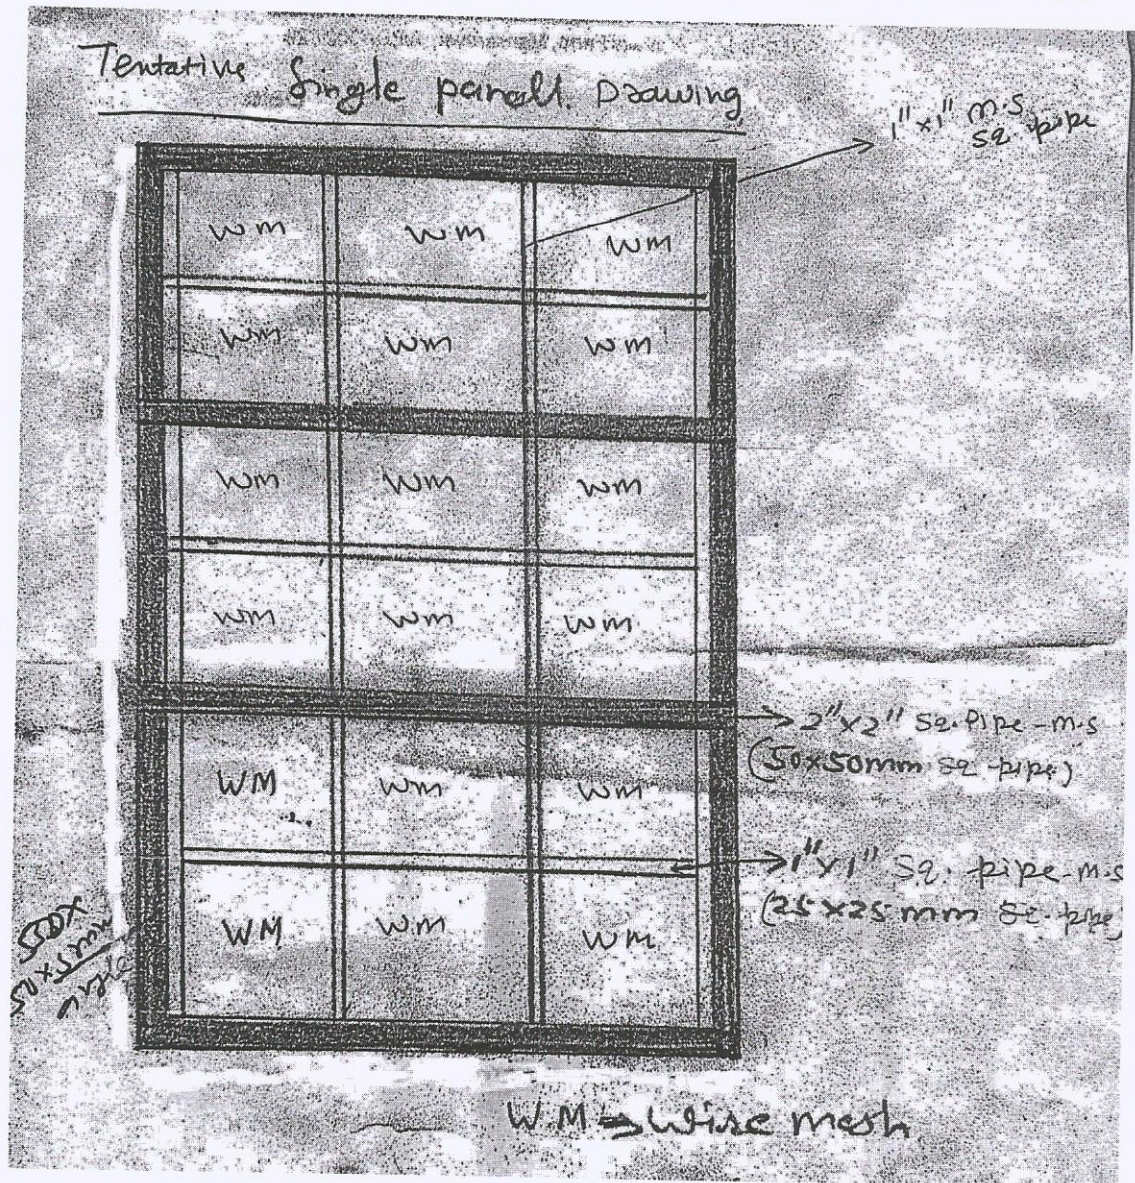 Tentative Single panell. Drawing
1"x1" m.s.
sq. pipe
WM WM WM
WM WM WM
WM WM WM
WM WM WM
2"x2" sq. pipe-m.s
(50x50mm sq-pipe)
WM WM WM
1"x1" sq. pipe-m.s
(25x25mm sq. pipe)
WM WM WM
angle
WM → wire mesh